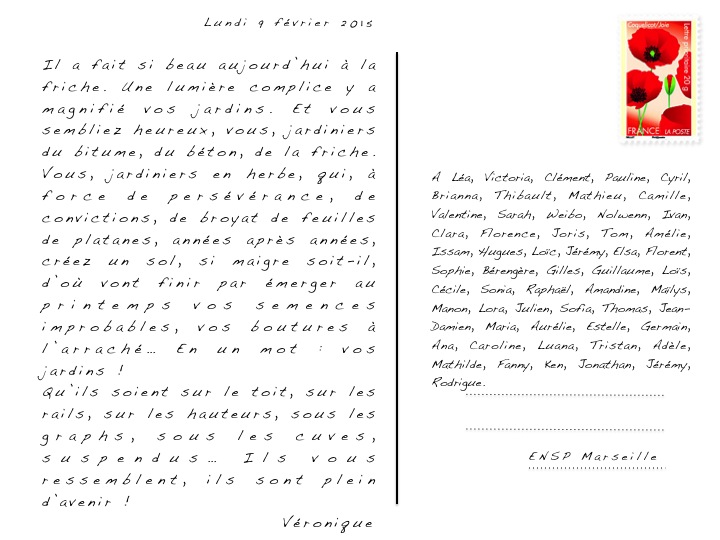 Lundi 9 février 2015
Il a fait si beau aujourd'hui à la
friche. Une lumière complice y a
magnifié vos jardins. Et vous
sembliez heureux, vous, jardiniers
du bitume, du béton, de la friche.
Vous, jardiniers en herbe, qui, à
force de persévérance, de
convictions, de broyat de feuilles
de platanes, années après années,
créez un sol, si maigre soit-il,
d'où vont finir par émerger au
printemps vos semences
improbables, vos boutures à
l'arraché... En un mot : vos
jardins !
Qu'ils soient sur le toit, sur les
rails, sur les hauteurs, sous les
graphs, sous les cuves,
suspendus... Ils vous
ressemblent, ils sont plein
d'avenir !
Véronique
Coquelicot/Joie
Lettre prioritaire 20 g
FRANCE LA POSTE
A Léa, Victoria, Clément, Pauline, Cyril,
Brianna, Thibault, Mathieu, Camille,
Valentine, Sarah, Weibo, Nolwenn, Ivan,
Clara, Florence, Joris, Tom, Amélie,
Issam, Hugues, Loïc, Jérémy, Elsa, Florent,
Sophie, Bérengère, Gilles, Guillaume, Loïs,
Cécile, Sonia, Raphaël, Amandine, Maïlys,
Manon, Lora, Julien, Sofia, Thomas, Jean-
Damien, Maria, Aurélie, Estelle, Germain,
Ana, Caroline, Luana, Tristan, Adèle,
Mathilde, Fanny, Ken, Jonathan, Jérémy,
Rodrigue.
ENSP Marseille